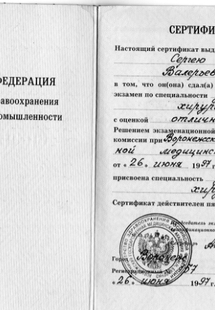 ФЕДЕРАЦИЯ
равоохранения
омышленности
СЕРТИФИ
Настоящий сертификат выд
Сергею
Валерьев
в том, что он(она) сдал(а)
экзамен по специальности
хирур
с оценкой отличн
Решением экзаменационной
комиссии при Воронежск
ной медицинс
от « 26 » июня 1997г.
присвоена специальность
хир
Сертификат действителен пя
Город Воронеж
Регистрационный
« 26 » июня 1997